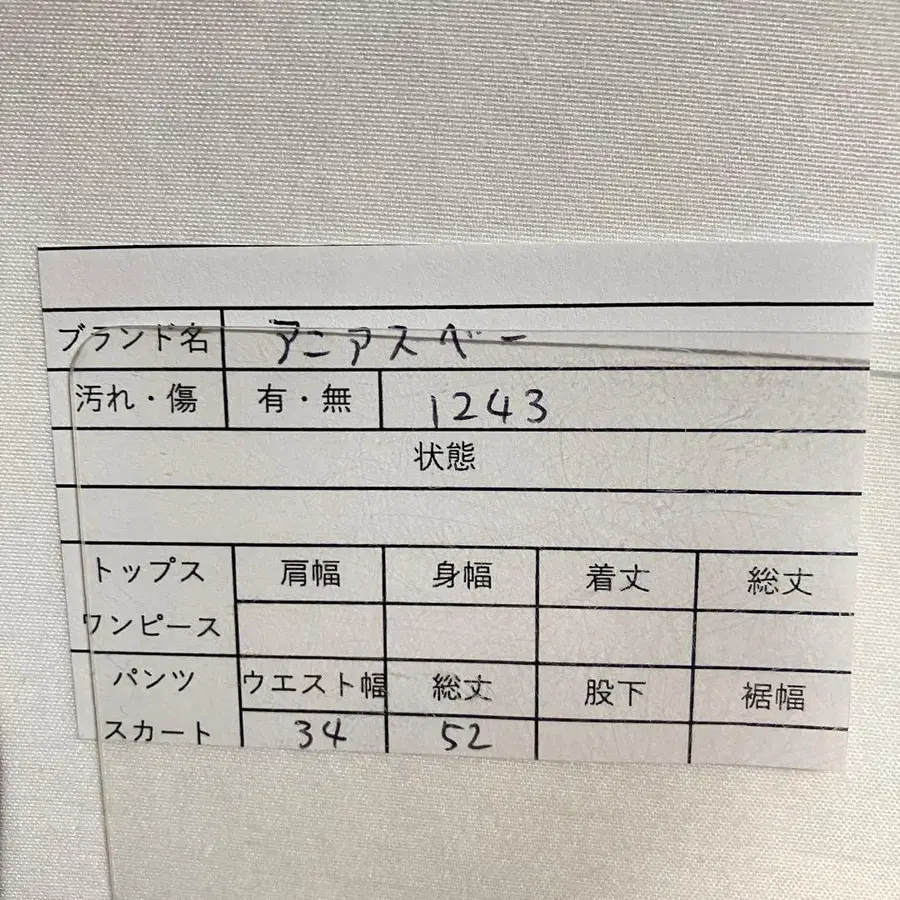 ブランド名 アニアスベー
汚れ・傷 有・無 1243
状態
トップス 肩幅 身幅 着丈 総丈
ワンピース
パンツ ウエスト幅 総丈 股下 裾幅
スカート 34 52